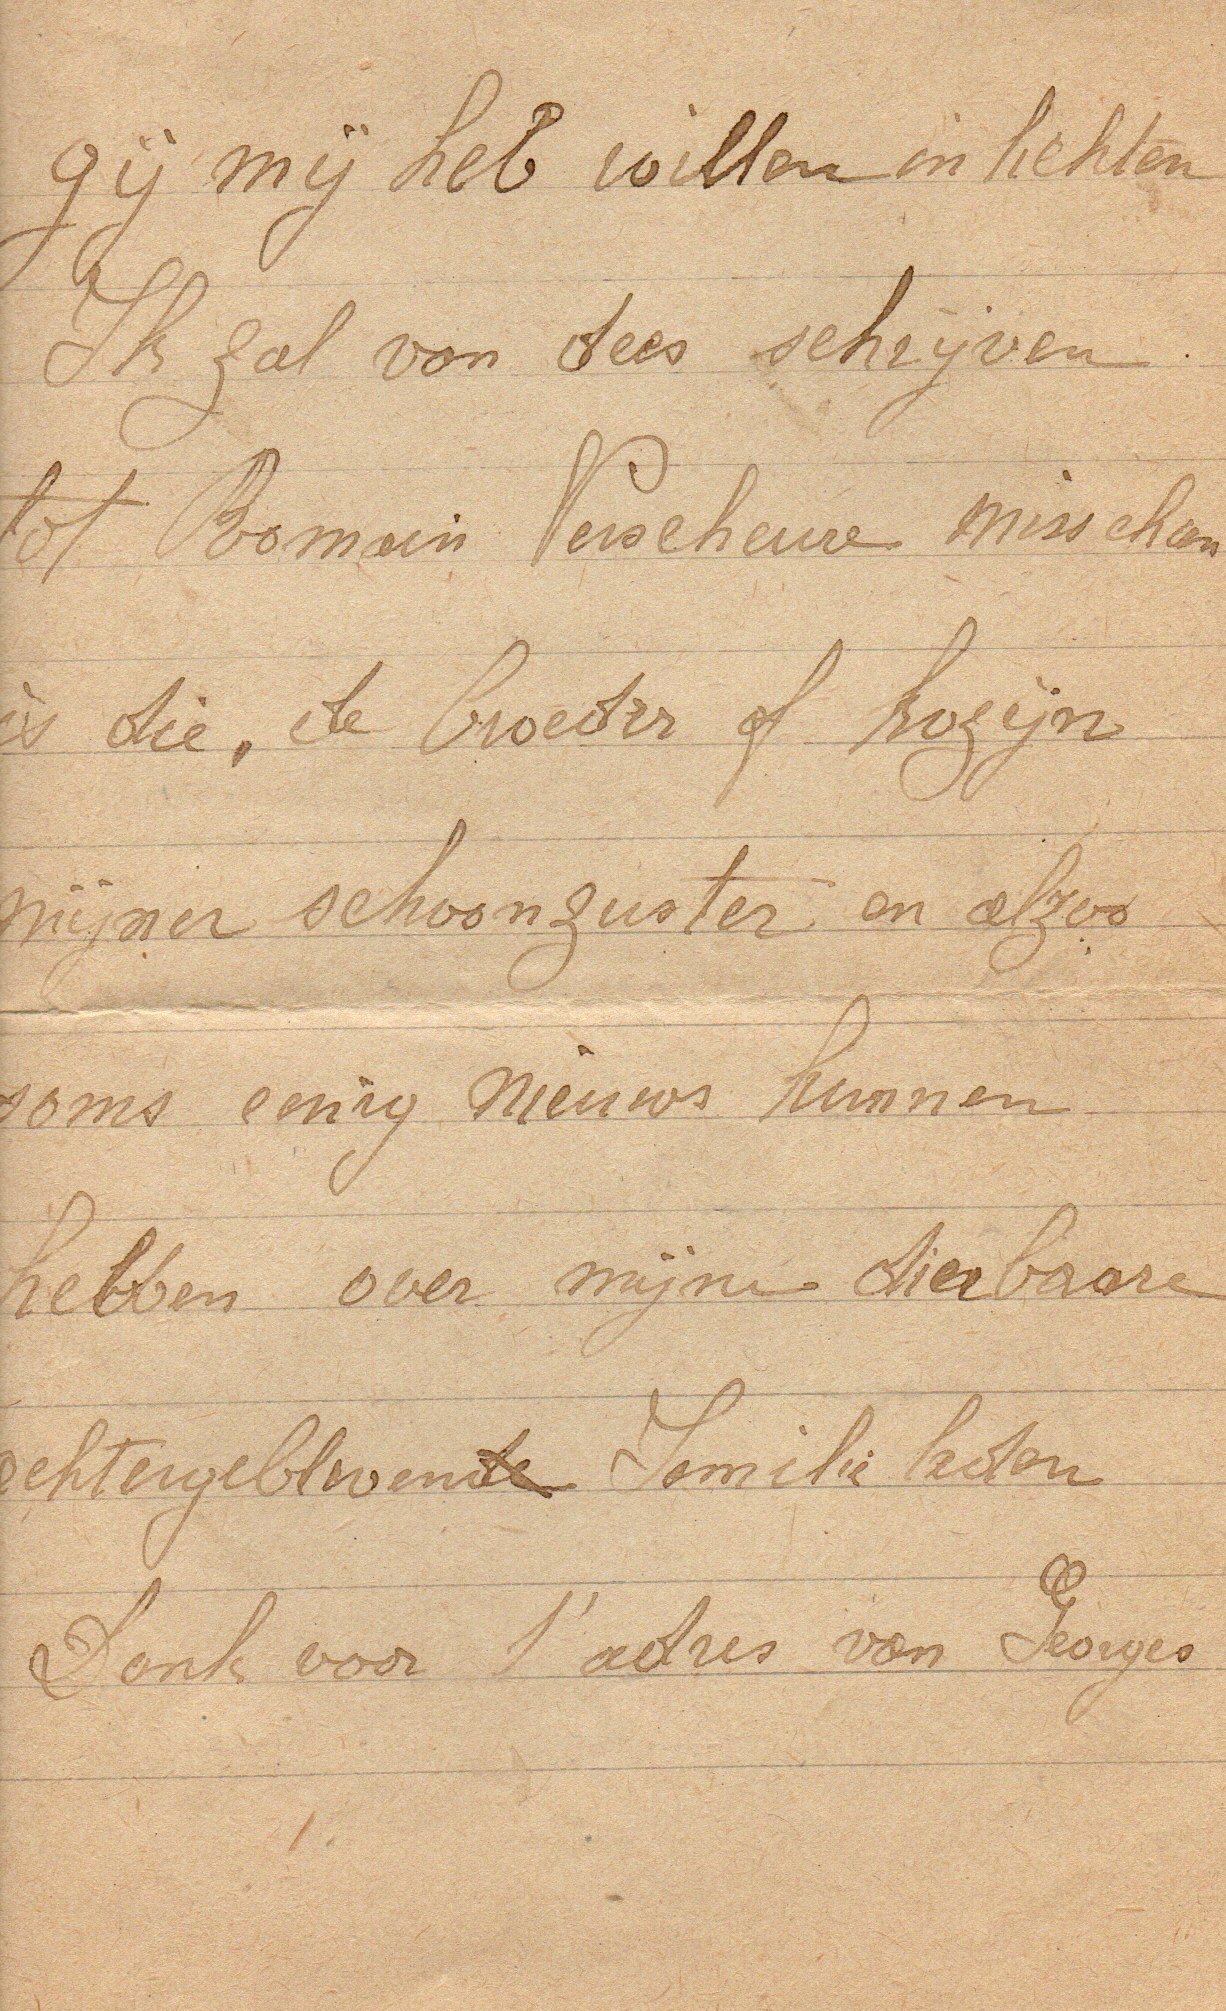 gij mij heb willen in lichten
Ik zal van dees schrijven
tot Romain Verscheure misschan
is die, de broeder of kozijn
mijner schoonzuster en alzoo
soms eenig nieuws kunnen
hebben over mijne dierbaare
achtergeblevende Familie leden
Dank voor t' adres van Georges